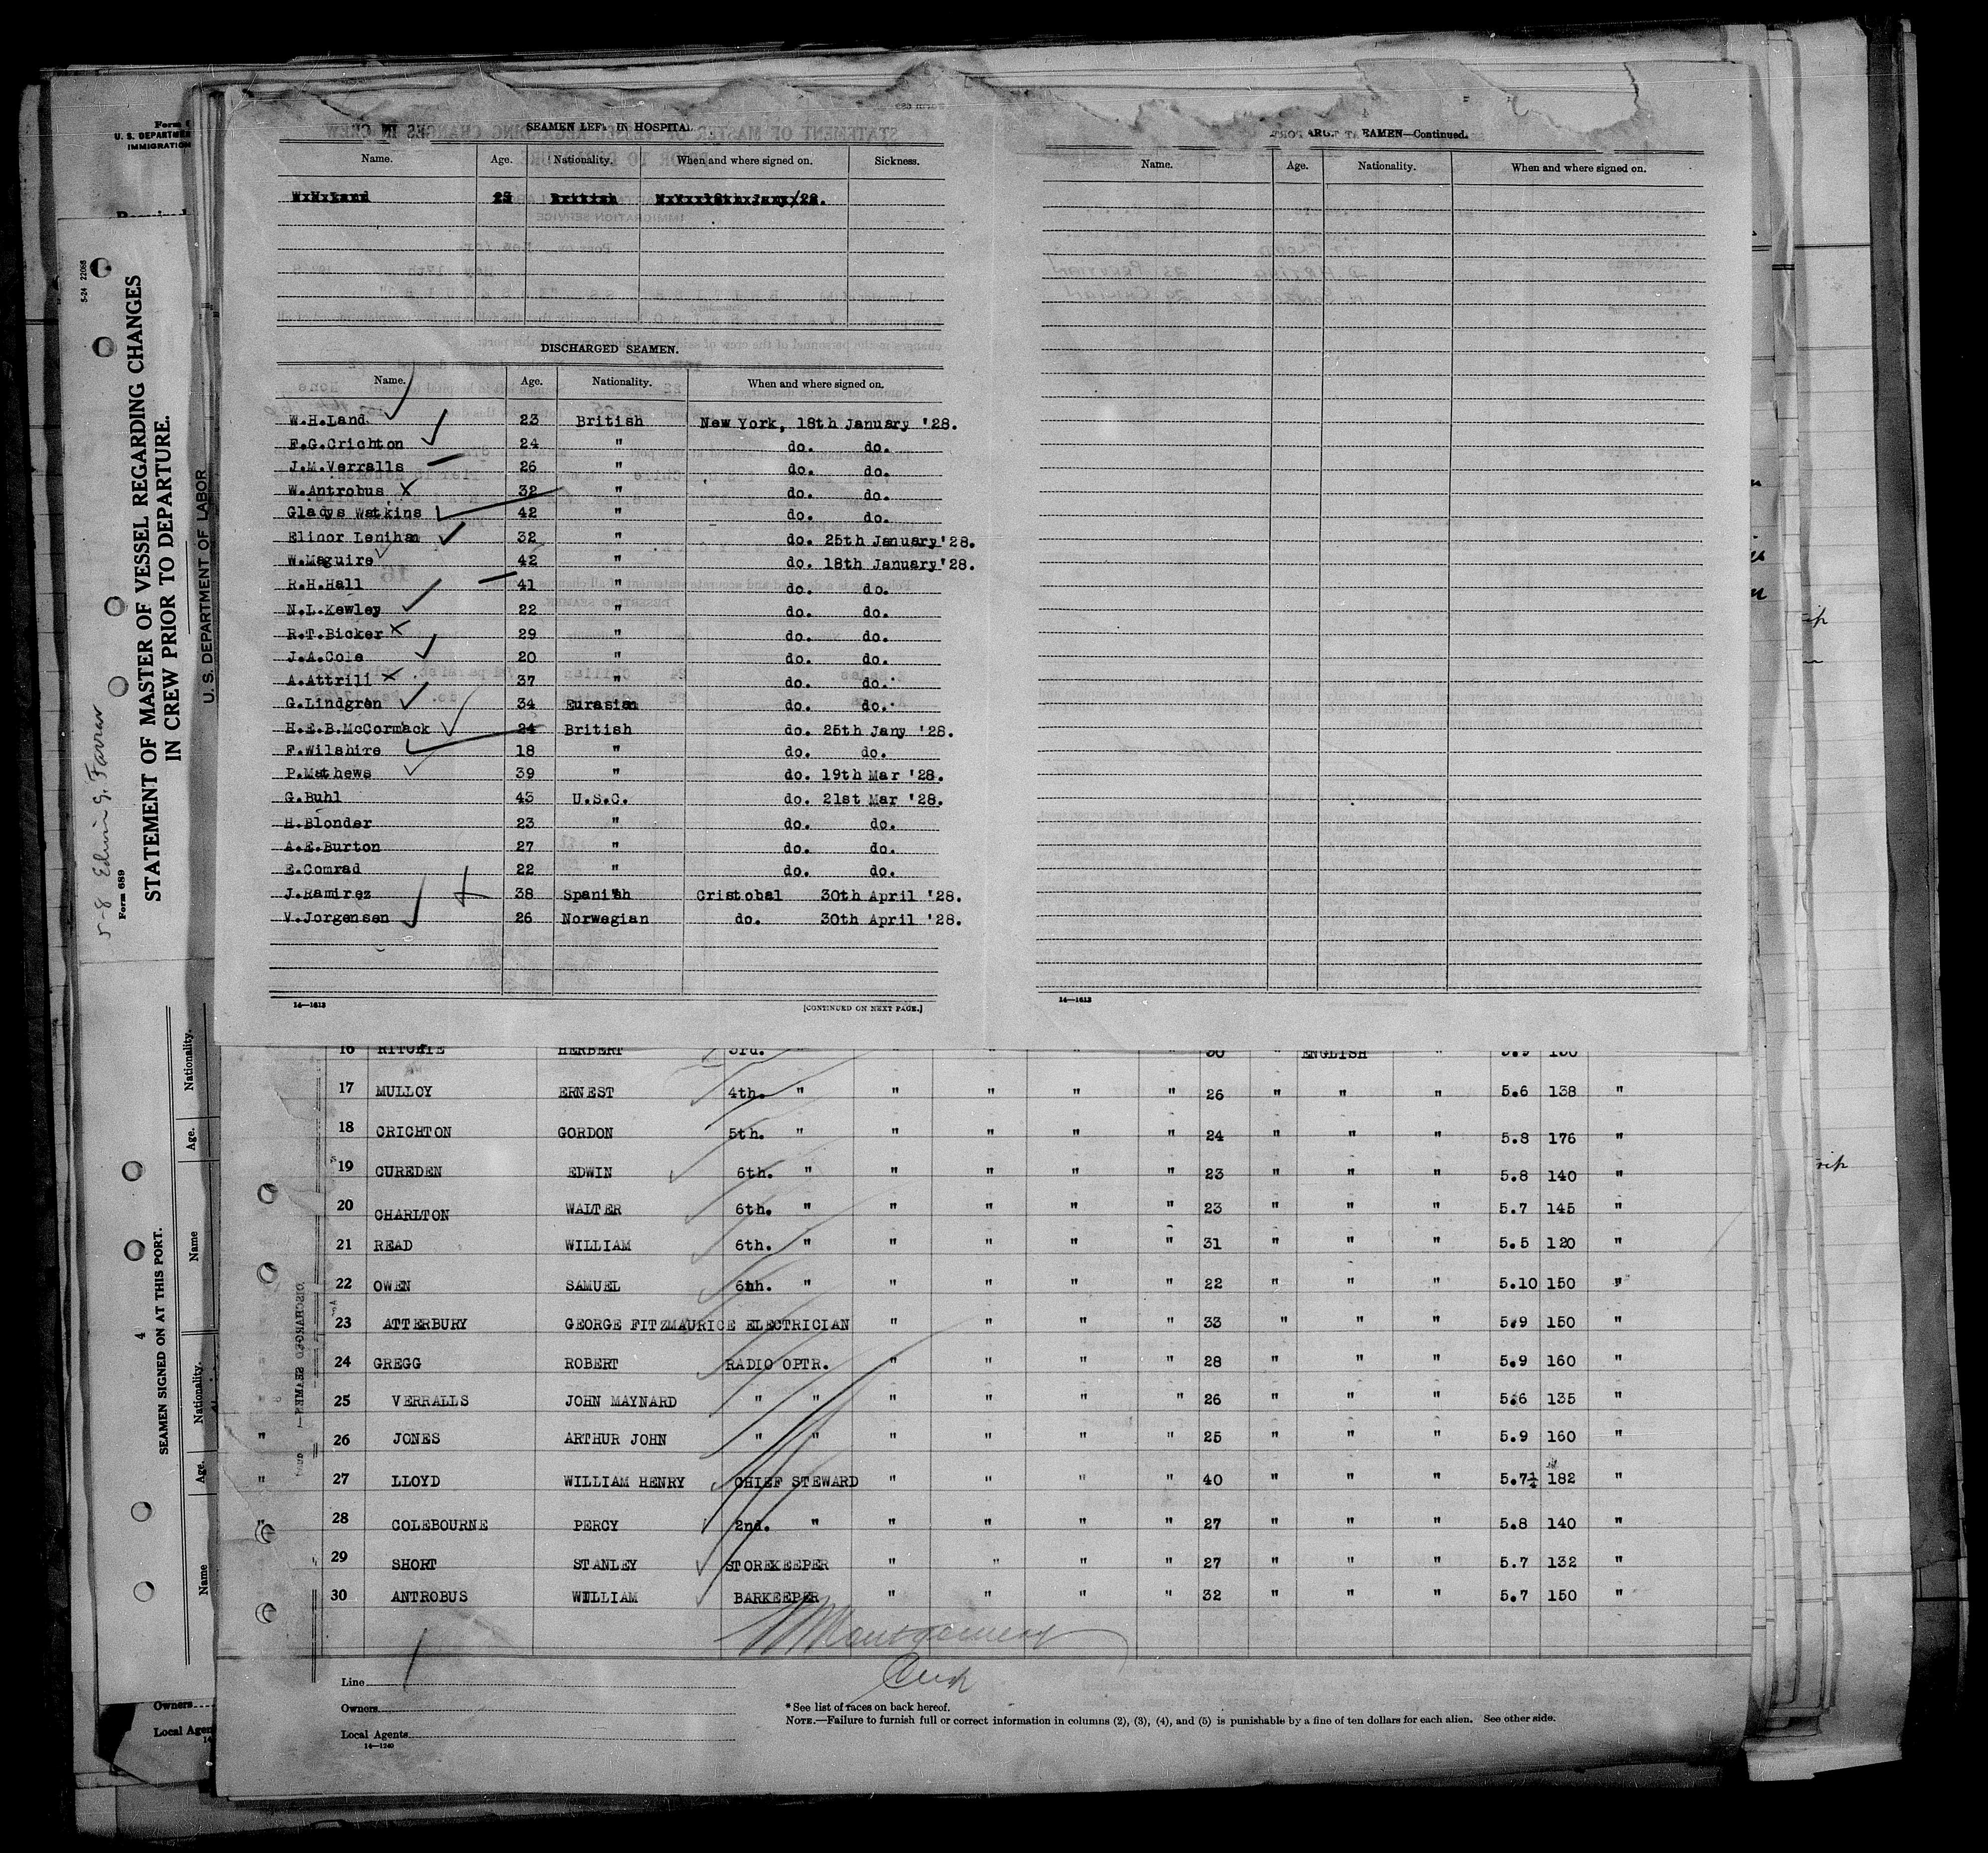 SEAMEN LEFT IN HOSPITAL
Name. Age. Nationality. When and where signed on. Sickness.
W.H.Land 23 British N.Y. 18th Jany/28.
DISCHARGED SEAMEN.
Name. Age. Nationality. When and where signed on.
W.H.Land 23 British New York, 18th January '28.
F.G.Crichton 24 " do. do.
J.M.Verralls 26 " do. do.
W.Antrobus 32 " do. do.
Gladys Watkins 42 " do. do.
Elinor Lenihan 32 " do. 25th January'28.
W.Maguire 42 " do. 18th January'28.
R.H.Hall 41 " do. do.
N.L.Kewley 22 " do. do.
R.T.Bicker 29 " do. do.
J.A.Cole 20 " do. do.
A.Attrill 37 " do. do.
G.Lindgren 34 Eurasian do. do.
H.E.B.McCormack 24 British do. 25th Jany '28.
F.Wilshire 18 " do. do.
P.Mathews 39 " do. 19th Mar '28.
G.Buhl 43 U.S.C. do. 21st Mar '28.
H.Blonder 23 " do. do.
A.E.Burton 27 " do. do.
E.Comrad 22 " do. do.
J.Ramirez 38 Spanish Cristobal 30th April '28.
V.Jorgensen 26 Norwegian do. 30th April '28.
14—1613
[CONTINUED ON NEXT PAGE.]
SEAMEN—Continued.
Name. Age. Nationality. When and where signed on.
14—1613
16 RITCHIE HERBERT 3rd. " " " " " 30 " ENGLISH " 5.9 150
17 MULLOY ERNEST 4th. " " " " " 26 " " " 5.6 138 "
18 CRICHTON GORDON 5th. " " " " " 24 " " " 5.8 176 "
19 CUREDEN EDWIN 6th. " " " " " 23 " " " 5.8 140 "
20 CHARLTON WALTER 6th. " " " " " 23 " " " 5.7 145 "
21 READ WILLIAM 6th. " " " " " 31 " " " 5.5 120 "
22 OWEN SAMUEL 6th. " " " " " 22 " " " 5.10 150 "
23 ATTERBURY GEORGE FITZMAURICE ELECTRICIAN " " " " 33 " " " 5.9 150 "
24 GREGG ROBERT RADIO OPTR. " " " " 28 " " " 5.9 160 "
25 VERRALLS JOHN MAYNARD " " " " " " 26 " " " 5.6 135 "
26 JONES ARTHUR JOHN " " " " " " 25 " " " 5.9 160 "
27 LLOYD WILLIAM HENRY CHIEF STEWARD " " " " 40 " " " 5.7½ 182 "
28 COLEBOURNE PERCY 2nd. " " " " " 27 " " " 5.8 140 "
29 SHORT STANLEY STOREKEEPER " " " " 27 " " " 5.7 132 "
30 ANTROBUS WILLIAM BARKEEPER " " " " 32 " " " 5.7 150 "
Line
Owners
Local Agents
14—1240
*See list of races on back hereof.
NOTE.—Failure to furnish full or correct information in columns (2), (3), (4), and (5) is punishable by a fine of ten dollars for each alien. See other side.
U. S. DEPARTMENT OF LABOR
STATEMENT OF MASTER OF VESSEL REGARDING CHANGES
IN CREW PRIOR TO DEPARTURE.
Form 689
5-24 22068
5-8 Edwin G. Farrar
4
SEAMEN SIGNED ON AT THIS PORT.
Name Age. Nationality.
Name Age. Nationality.
U. S. DEPARTMENT
IMMIGRATION
Owners
Local Agen